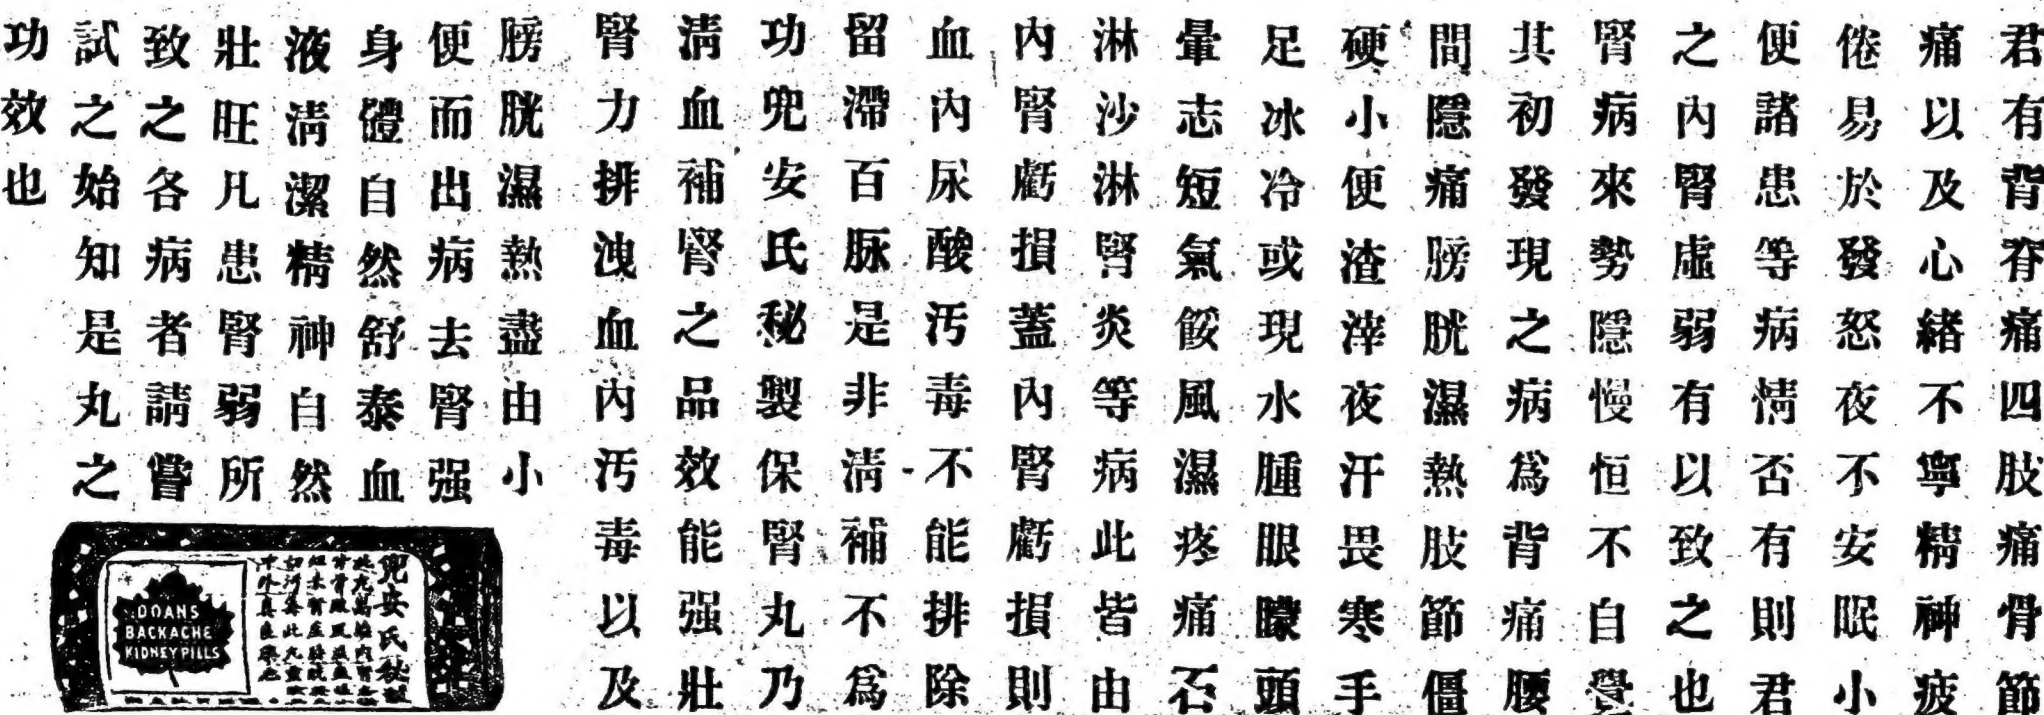 君有背脊痛四肢痛骨節
痛以及心緒不寧精神疲
倦易於發怒夜不安眠小
便諸患等病情否有則君
之內腎虛弱有以致之也
腎病來勢隱慢恒不自覺
其初發現之病爲背痛腰
間隱痛膀胱濕熱肢節僵
硬小便渣滓夜汗畏寒手
足冰冷或現水腫眼矇頭
暈志短氣餒風濕疼痛石
淋沙淋腎炎等病此皆由
內腎虧損蓋內腎虧損則
血內尿酸汚毒不能排除
留滯百脉是非清補不爲
功兜安氏秘製保腎丸乃
清血補腎之品效能强壯
腎力排洩血內汚毒以及
膀胱濕熱盡由小
便而出病去腎强
身體自然舒泰血
液清潔精神自然
壯旺凡患腎弱所
致之各病者請嘗
試之始知是丸之
功效也
兜安氏秘製
DOANS
BACKACHE
KIDNEY PILLS